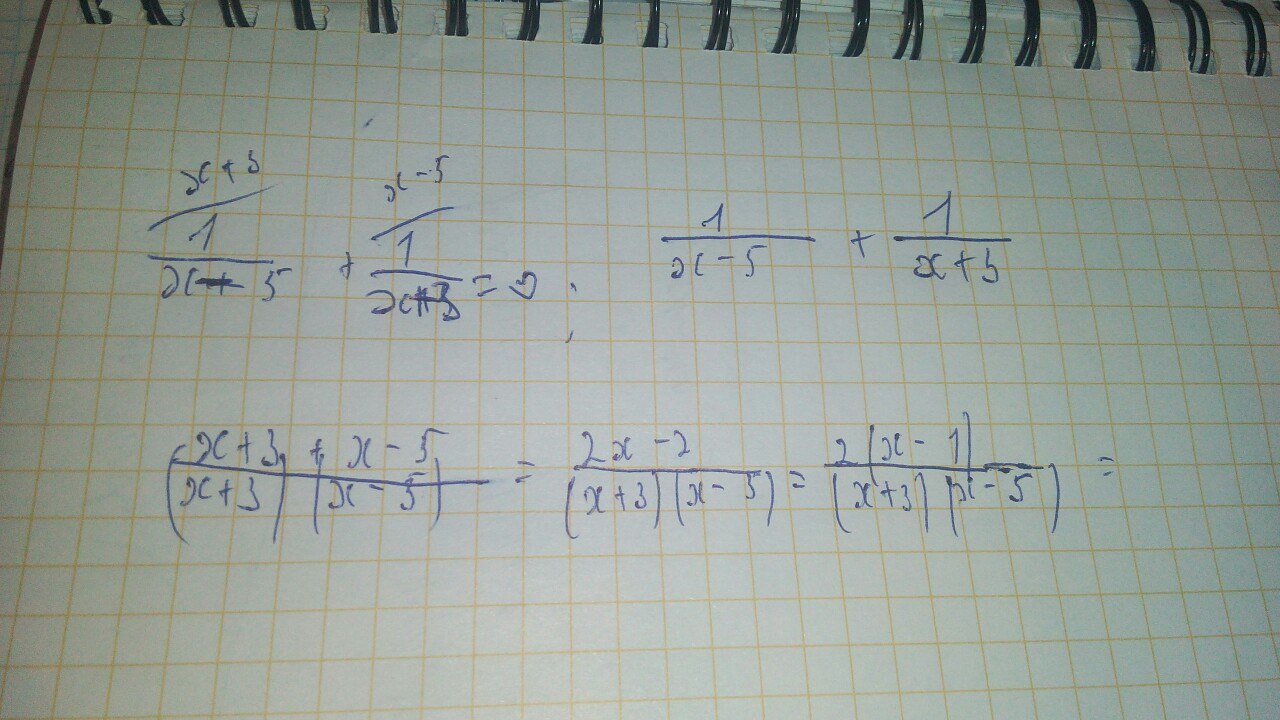 x + 3 x - 5
1/(x - 5) + 1/(x + 3) = 0 ; 1/(x - 5) + 1/(x + 3)
(x + 3 + x - 5)/((x + 3)(x - 5)) = (2x - 2)/((x + 3)(x - 5)) = 2(x - 1)/((x + 3)(x - 5)) =